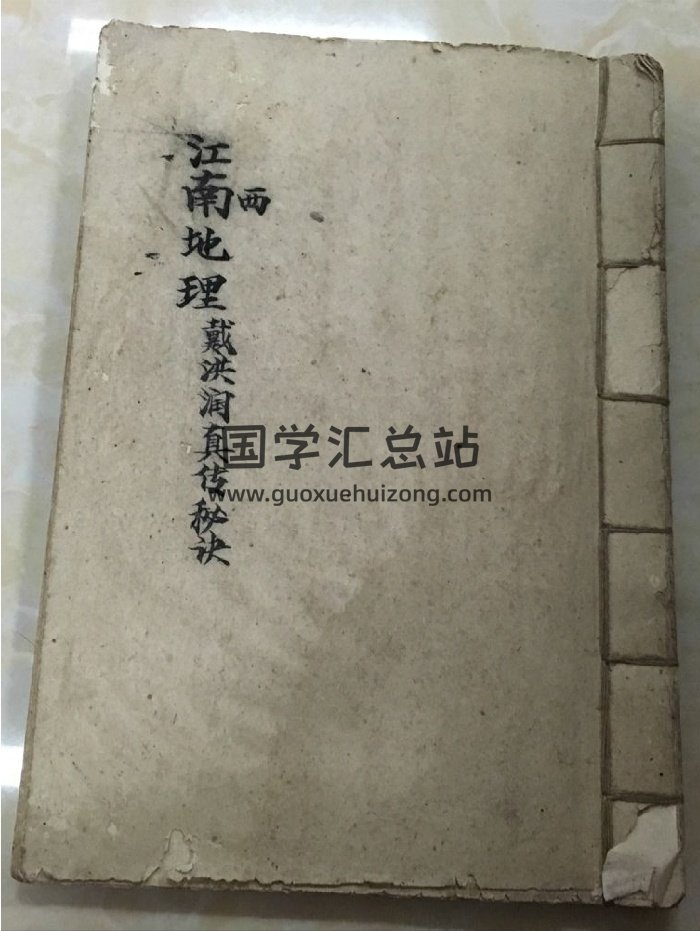 江南地理
西
戴洪润真传秘诀
国学汇总站
www.guoxuehuizong.com